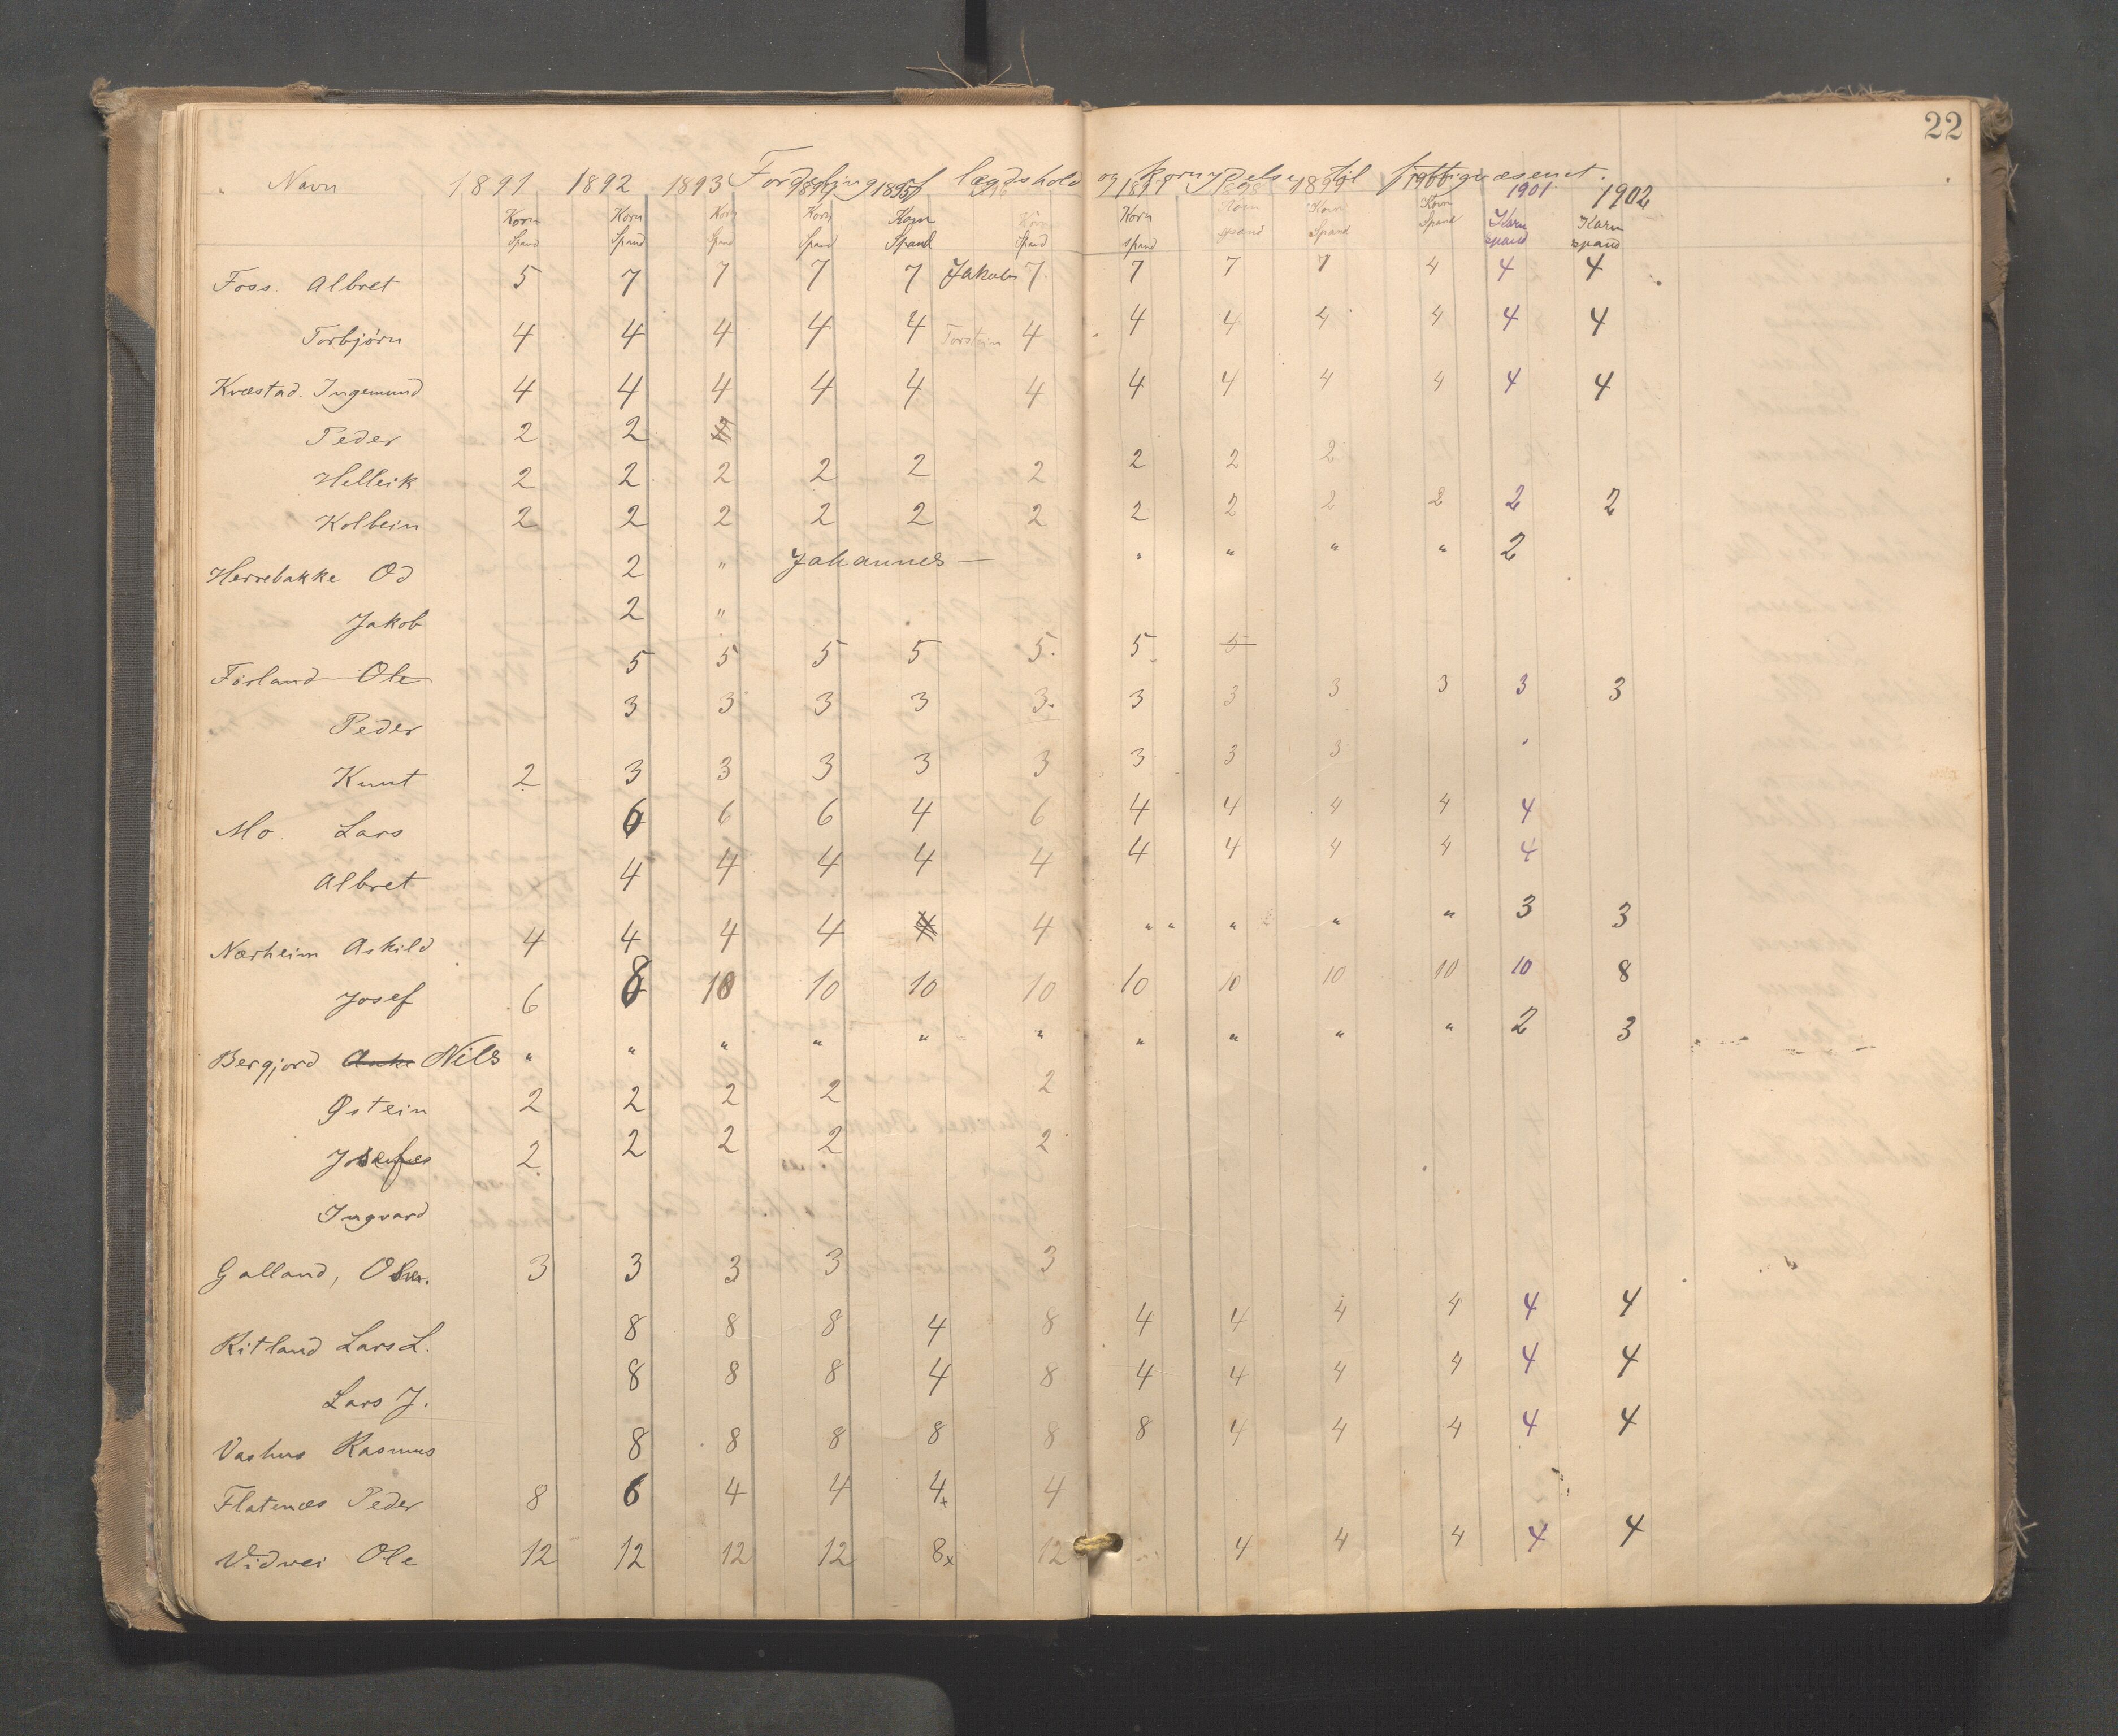 22
Fordeling af lægdshold og kornydelse til fattigvæsenet.
Navn 1891 1892 1893 1894 1895 1896 1897 1898 1899 1900 1901 1902
Korn Korn Korn Korn Korn Korn Korn Korn Korn Korn Korn Korn
Spand Spand Spand Spand Spand Spand spand spand Spand Spand spand spand
Foss Albret 5 7 7 7 7 Jakob 7 7 7 7 4 4 4
Torbjørn 4 4 4 4 4 Torstein 4 4 4 4 4 4 4
Kvæstad. Ingemund 4 4 4 4 4 4 4 4 4 4 4 4
Peder 2 2
Helleik 2 2 2 2 2 2 2 2 2
Kolbein 2 2 2 2 2 2 2 2 2 2 2 2
Herrebakke Od 2 " Johannes — " " " " 2
Jakob 2 "
Førland Ole 5 5 5 5 5. 5 5
Peder 3 3 3 3 3. 3 3 3 3 3 3
Knut 2 3 3 3 3 3 3 3 3
Mo Lars 6 6 6 4 6 4 4 4 4 4
Albret 4 4 4 4 4 4 4 4 4 4
Nærheim Askild 4 4 4 4 4 4 " " " " " 3 3
Josef 6 8 10 10 10 10 10 10 10 10 10 8
Bergjord Nils " " " " " " " " " " 2 3
Østein 2 2 2 2 2
2 2 2 2 2
Ingvard
Galland, 3 3 3 3 3
Ritland Lars L. 8 8 8 4 8 4 4 4 4 4 4
Lars J. 8 8 8 4 8 4 4 4 4 4 4
Vashus Rasmus 8 8 8 8 8 8 4 4 4 4 4
Flatenæs Peder 8 6 4 4 4x 4
Vidvei Ole 12 12 12 12 8x 12 4 4 4 4 4